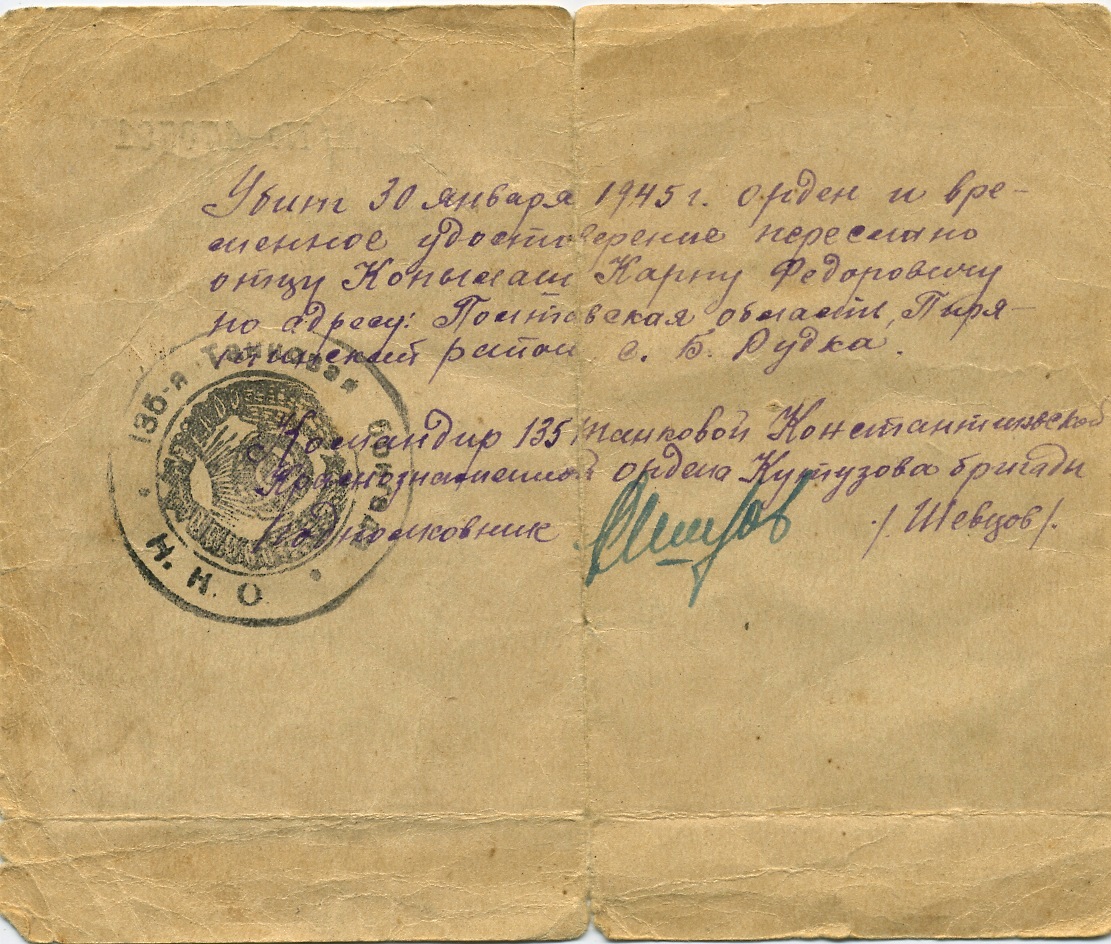 Убит 30 января 1945 г. орден и вре-
менное удостоверение переслано
отцу Копылаш Карпу Федоровичу
по адресу: Полтавская области, Пиря-
тинский район с. Б. Рудка.
135-я Танковая бригада
Н.К.О
Командир 135 танковой Константиновской
Краснознаменной ордена Кутузова бригады
Подполковник /Шевцов/.